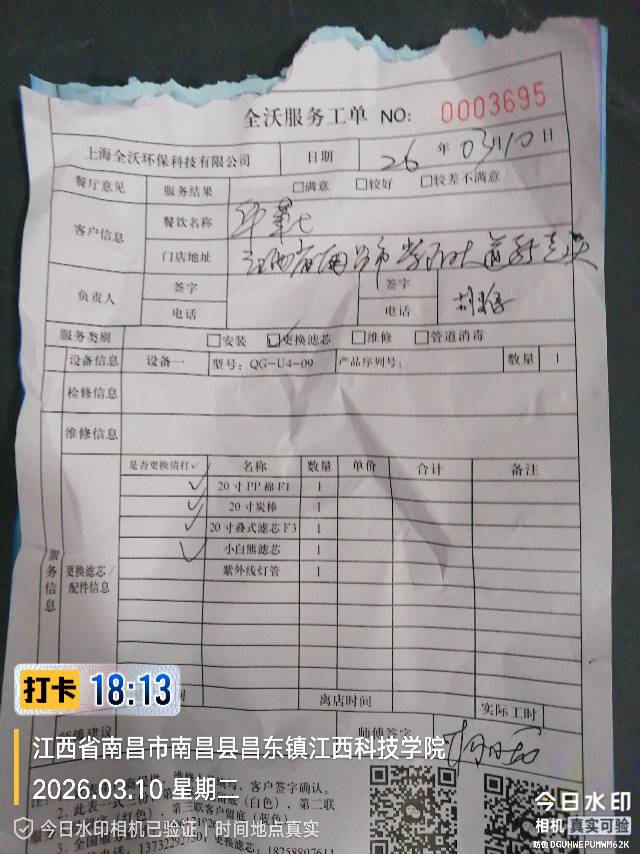 全沃服务工单 NO: 0003695
上海全沃环保科技有限公司 日期 26 年 03月10日
餐厅意见 服务结果 □满意 □较好 □较差不满意
客户信息 餐饮名称 华莱士
门店地址 江西省南昌市
负责人 签字 签字
电话 电话 胡
服务类别 □安装 ☑更换滤芯 □维修 □管道消毒
设备信息 设备一 型号: QG-U4-09 产品序列号: 数量 1
检修信息
维修信息
服务信息
更换滤芯/配件信息
是否更换请打√ 名称 数量 单价 合计 备注
✓ 20寸PP棉F1 1
✓ 20寸炭棒 1
✓ 20寸叠式滤芯F3 1
✓ 小白熊滤芯 1
紫外线灯管 1
离店时间 实际工时
建议 师傅签字
打卡 18:13
江西省南昌市南昌县昌东镇江西科技学院
2026.03.10 星期二
客户签字确认。
今日水印相机已验证 | 时间地点真实
今日水印
相机 真实可验
防伪 DGUHWEPUMWM62K